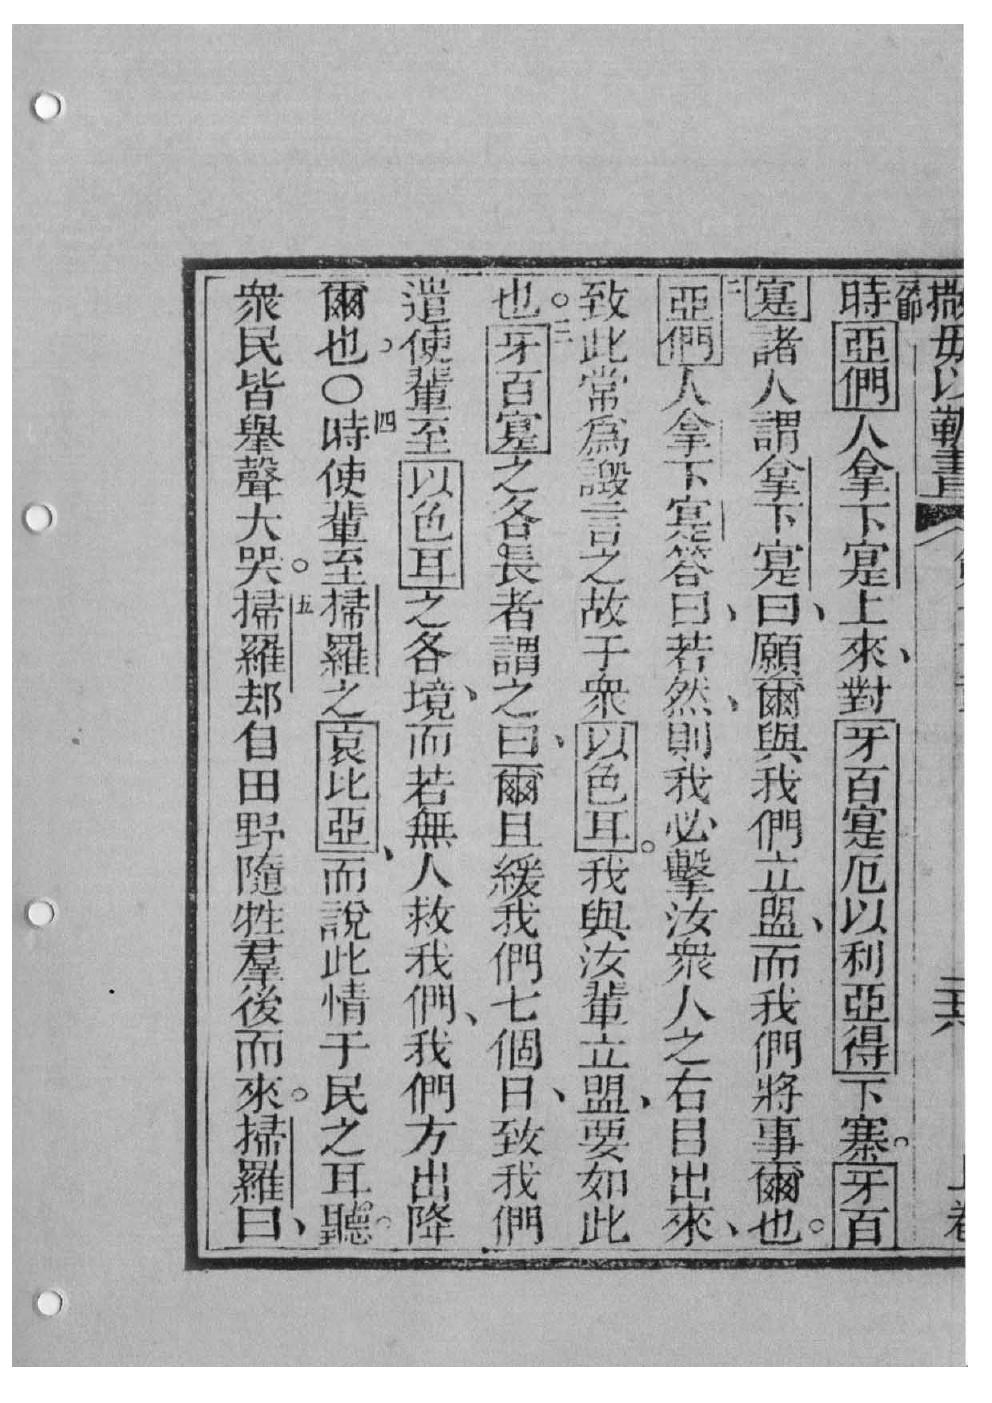 撒母以勒書
時亞們人拿下寔上來、對牙百寔厄以利亞得下寨。牙百
寔諸人謂拿下寔曰、願爾與我們立盟、而我們將事爾也。
二亞們人拿下寔答曰、若然、則我必擊汝衆人之右目出來、
致此常爲譭言之故于衆以色耳。我與汝輩立盟、要如此
也。三牙百寔之各長者謂之曰、爾且緩我們七個日、致我們
遣使輩至以色耳之各境、而若無人救我們、我們方出降
爾也。〇四時使輩至掃羅之袁比亞、而說此情于民之耳聽。
衆民皆舉聲大哭。五掃羅却自田野隨牲羣後而來。掃羅曰、